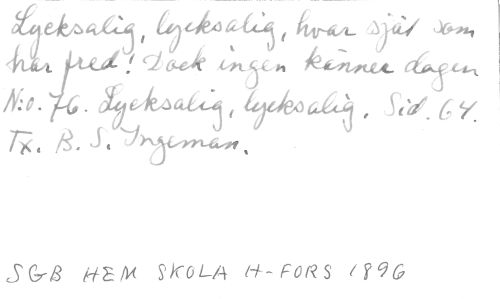 Lycksalig, lycksalig, hvar själ som
har fred! Dock ingen känner dagen
N:o. 76. Lycksalig, lycksalig. Sid. 64.
Tx. B. S. Ingeman.
SGB HEM SKOLA H-FORS 1896